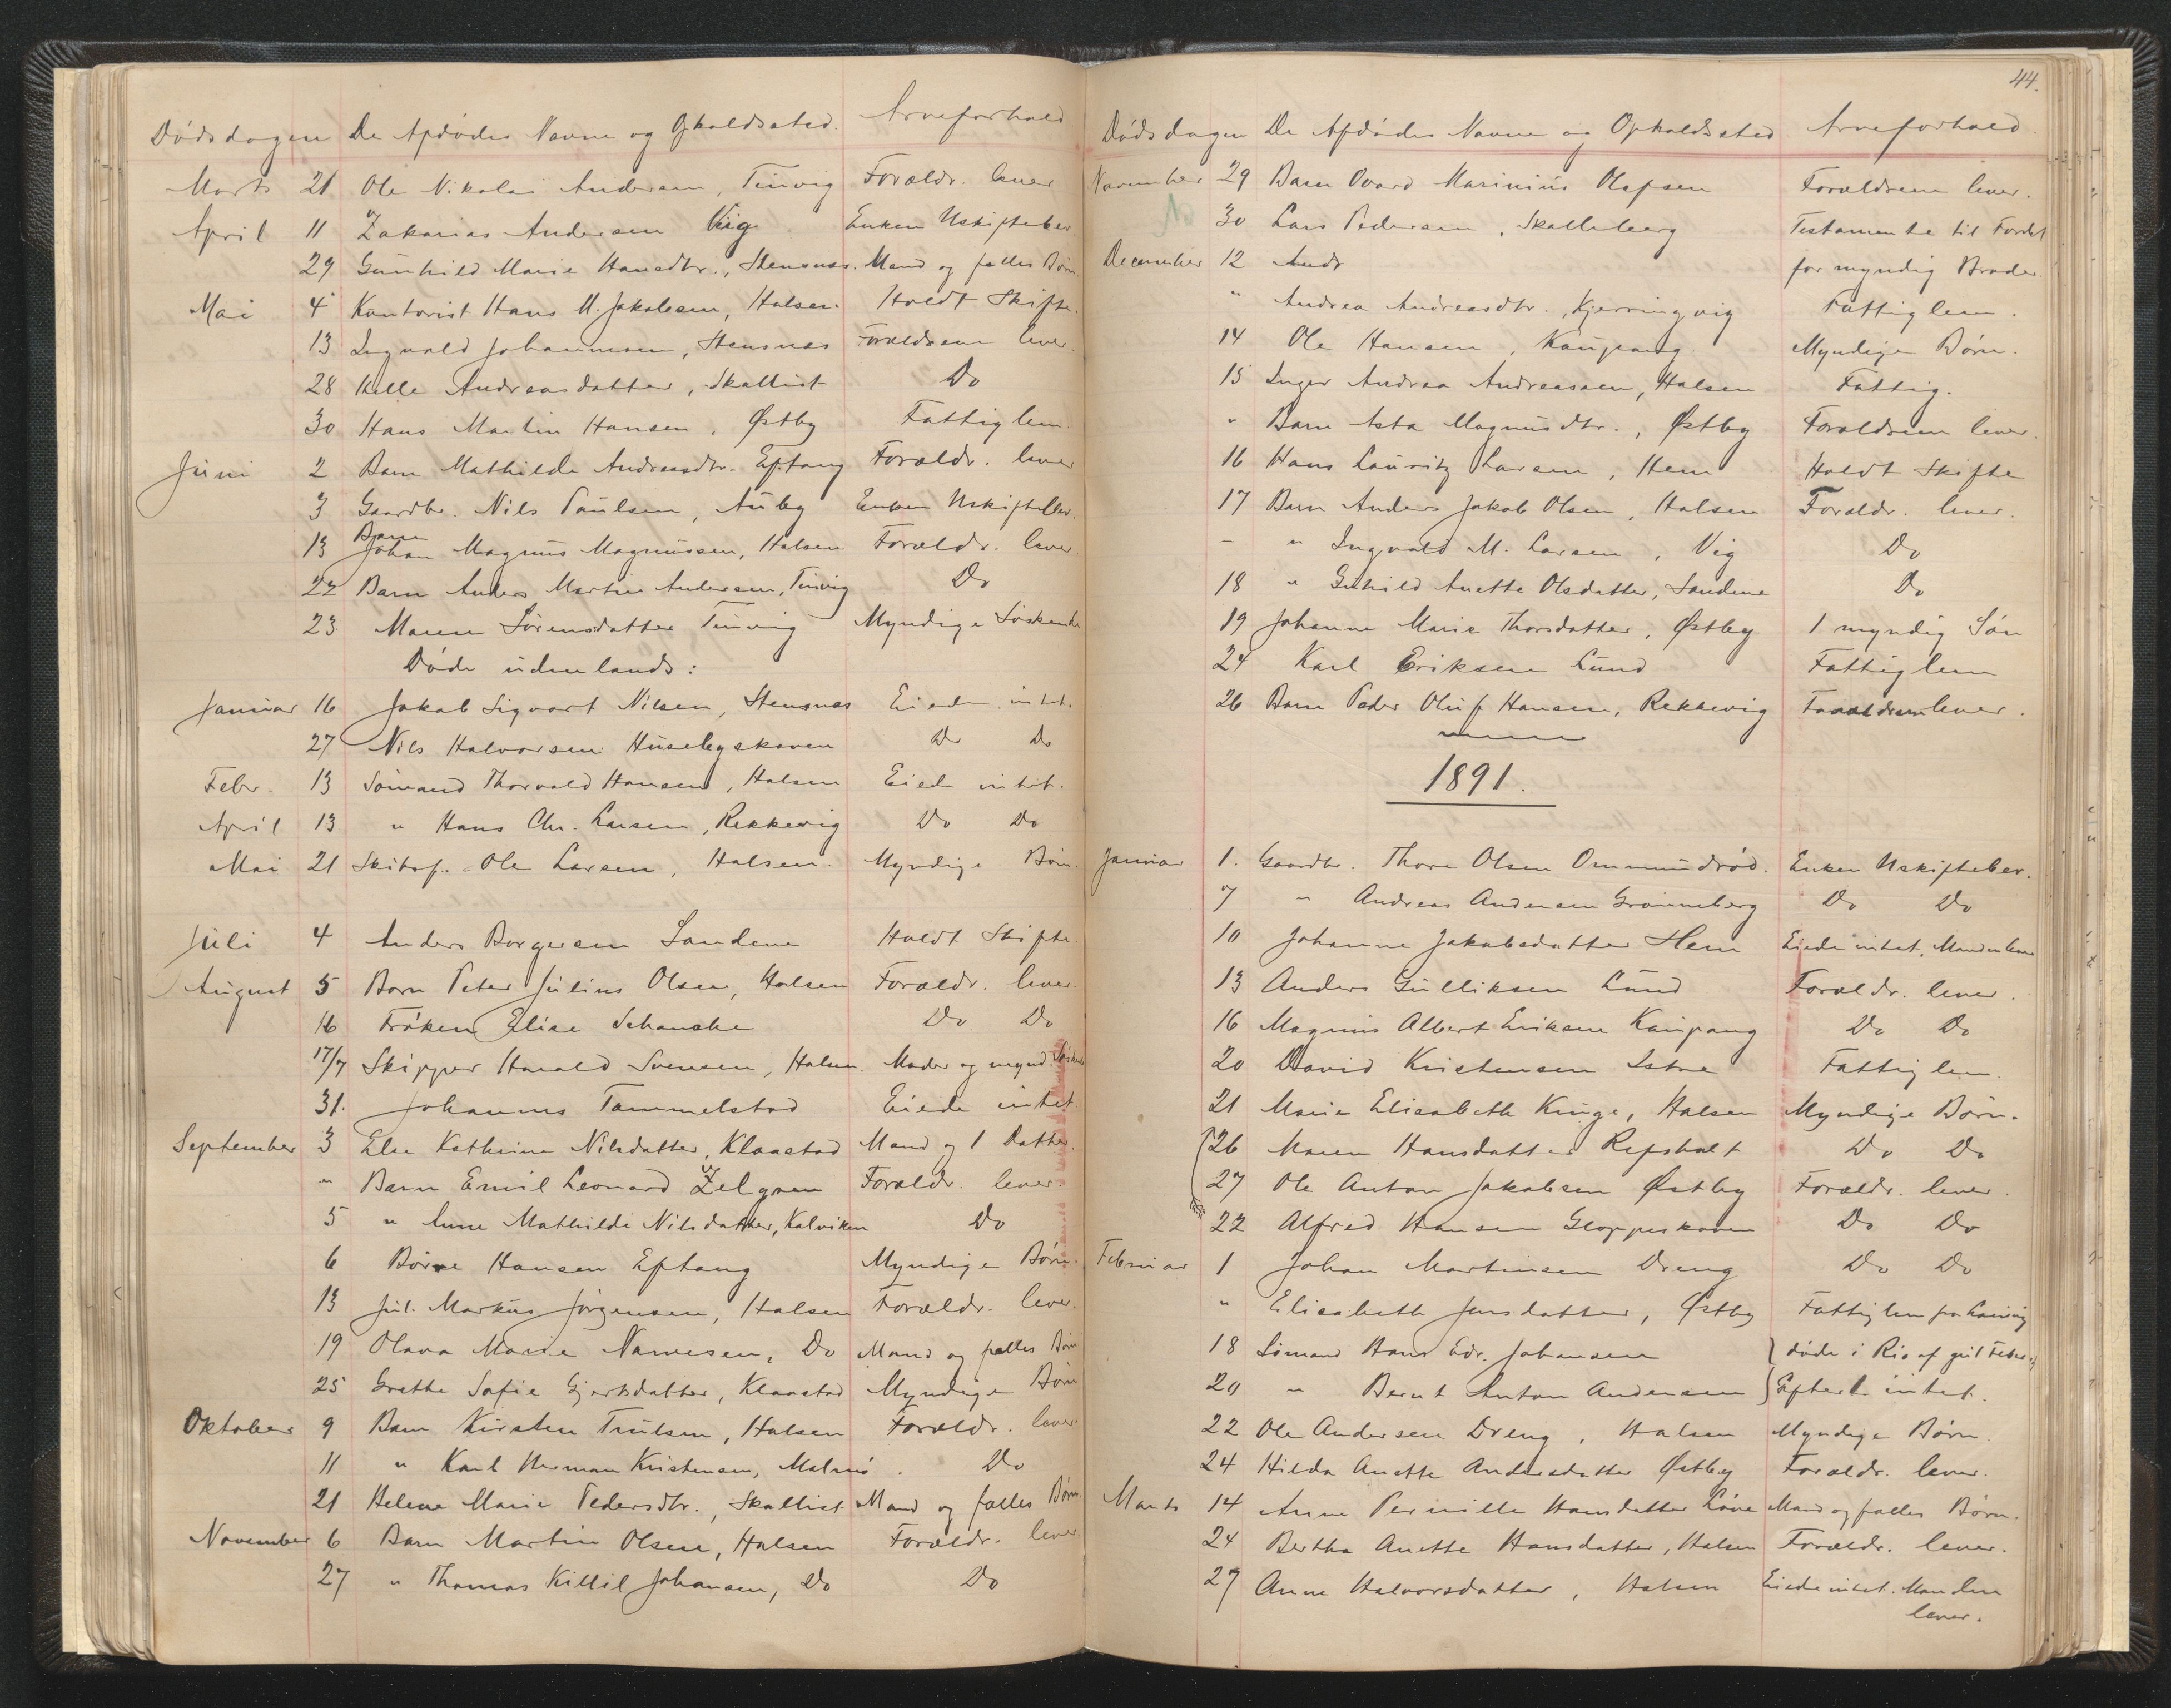 Dödsdagen De Afdödes Navne og Opholdssted. Arveforhold
Marts 21 Ole Nikolai Andersen, Tinvig Forældr. lever
April 11 Zakarias Andersen Vig Enken Uskiftebev
29 Gunhild Marie Hansdtr., Stensnæs. Mand og fælles Börn
Mai 4 Kontorist Hans M. Jakobsen, Halsen. Holdt Skifte.
13 Ingvald Johannesen, Stensnæs Forældrene lever.
28 Helle Andreasdatter, Skallist Do
30 Hans Martin Hansen, Østby Fattiglem
Juni 2 Barn Mathilde Andreasdtr. Eftang Forældr. lever
3 Gaardbr. Nils Paulsen, Auby Enken Uskiftebev.
13 Barn Johan Magnus Magnussen, Halsen Forældr. lever
22 Barn Anders Martin Andersen, Tinvig Do
23 Maren Sörensdatter Tinvig Myndige Söskende
Döde udenlands:
Januar 16 Jakob Sigvart Nilsen, Stensnæs Eiede intet.
27 Nils Halvorsen Husebyskoven Do Do
Febr. 13 Sömand Thorvald Hansen, Halsen Eiede intet.
April 13 " Hans Chr. Larsen, Rekkevig Do Do
Mai 21 Skibsf. Ole Larsen, Halsen. Myndige Börn.
Juli 4 Anders Borgersen Sandene Holdt Skifte
August 5 Barn Peter Julius Olsen, Halsen Forældr. lever.
16 Fröken Elise Schanche Do Do
17/7 Skipper Harald Svensen, Halsen. Moder og mynd. Söskende
31. Johannes Tammelstad Eiede intet
September 3 Else Kathrine Nilsdatter, Klaastad Mand og 1 Datter.
" Barn Emil Leonard Zelgren Forældr. lever.
5 " Anne Mathilde Nilsdatter, Kalviken Do
6 Börre Hansen Eftang Myndige Börn.
13 Jul. Markus Jörgensen, Halsen Forældr. lever.
19 Olava Marie Narvesen, Do Mand og fælles Börn
25 Grethe Sofie Gjertsdatter, Klaastad Myndige Börn
Oktober 9 Barn Kirsten Trulsen, Halsen Forældr. lever
11 " Karl Herman Kristensen, Malmö. Do
21 Helene Marie Pedersdtr., Skallist Mand og fælles Börn.
November 6 Barn Martin Olsen, Halsen Forældr. lever.
27 " Thomas Killil Johansen, Do Do
44.
Dödsdagen De Afdödes Navne og Opholdssted Arveforhold.
November 29 Barn Ovard Marinius Olafsen Forældrene lever.
30 Lars Pedersen, Skalleberg Testamente til Fordel
December 12 Andr for myndig Broder.
" Andrea Andreasdtr., Kjerringvig Fattiglem.
14 Ole Hansen, Kaupang. Myndige Börn.
15 Inger Andrea Andreassen, Halsen Fattig.
" Barn Asta Magnusdtr., Østby Forældrene lever.
16 Hans Lauritz Larsen, Hem Holdt Skifte
17 Barn Anders Jakob Olsen, Halsen Forældr. lever.
- " Ingvald M. Larsen, Vig Do
18 " Gunhild Anette Olsdatter, Sandene Do
19 Johanne Marie Thorsdatter, Østby 1 myndig Sön
24 Karl Eriksen Lund Fattiglem
26 Barn Peder Oluf Hansen, Rekkevig Forældrene lever.
1891.
Januar 1. Gaardbr. Thore Olsen Ommundröd. Enken Uskiftebev.
7 " Andreas Andersen Grönneberg Do Do
10 Johanne Jakobsdatter Hem Eiede intet, Manden lever
13 Anders Gulliksen Lund Forældr. lever.
16 Magnus Albert Eriksen Kaupang Do Do
20 David Kristensen Istre Fattiglem.
21 Marie Elisabeth Kinge, Halsen Myndige Börn.
26 Maren Hansdatter Refsholt Do Do
27 Ole Anton Jakobsen Østby Forældr. lever.
22 Alfred Hansen Gloppeskoven Do Do
Februar 1 Johan Martinsen Dreng Do Do
" Elisabeth Jensdatter, Østby Fattiglem fra Laurvig
18 Sömand Hans Edv. Johansen } döde i Rio af gul Feber,
20 " Bernt Anton Andersen } Efterl. intet.
22 Ole Andersen Dreng, Halsen Myndige Börn.
24 Hilda Anette Andersdatter Østby Forældr. lever.
Marts 14 Anne Pernille Hansdatter Löve Mand og fælles Börn.
24 Bertha Anette Hansdatter, Halsen Forældr. lever.
27 Anne Halvorsdatter, Halsen Eiede intet. Manden
lever.